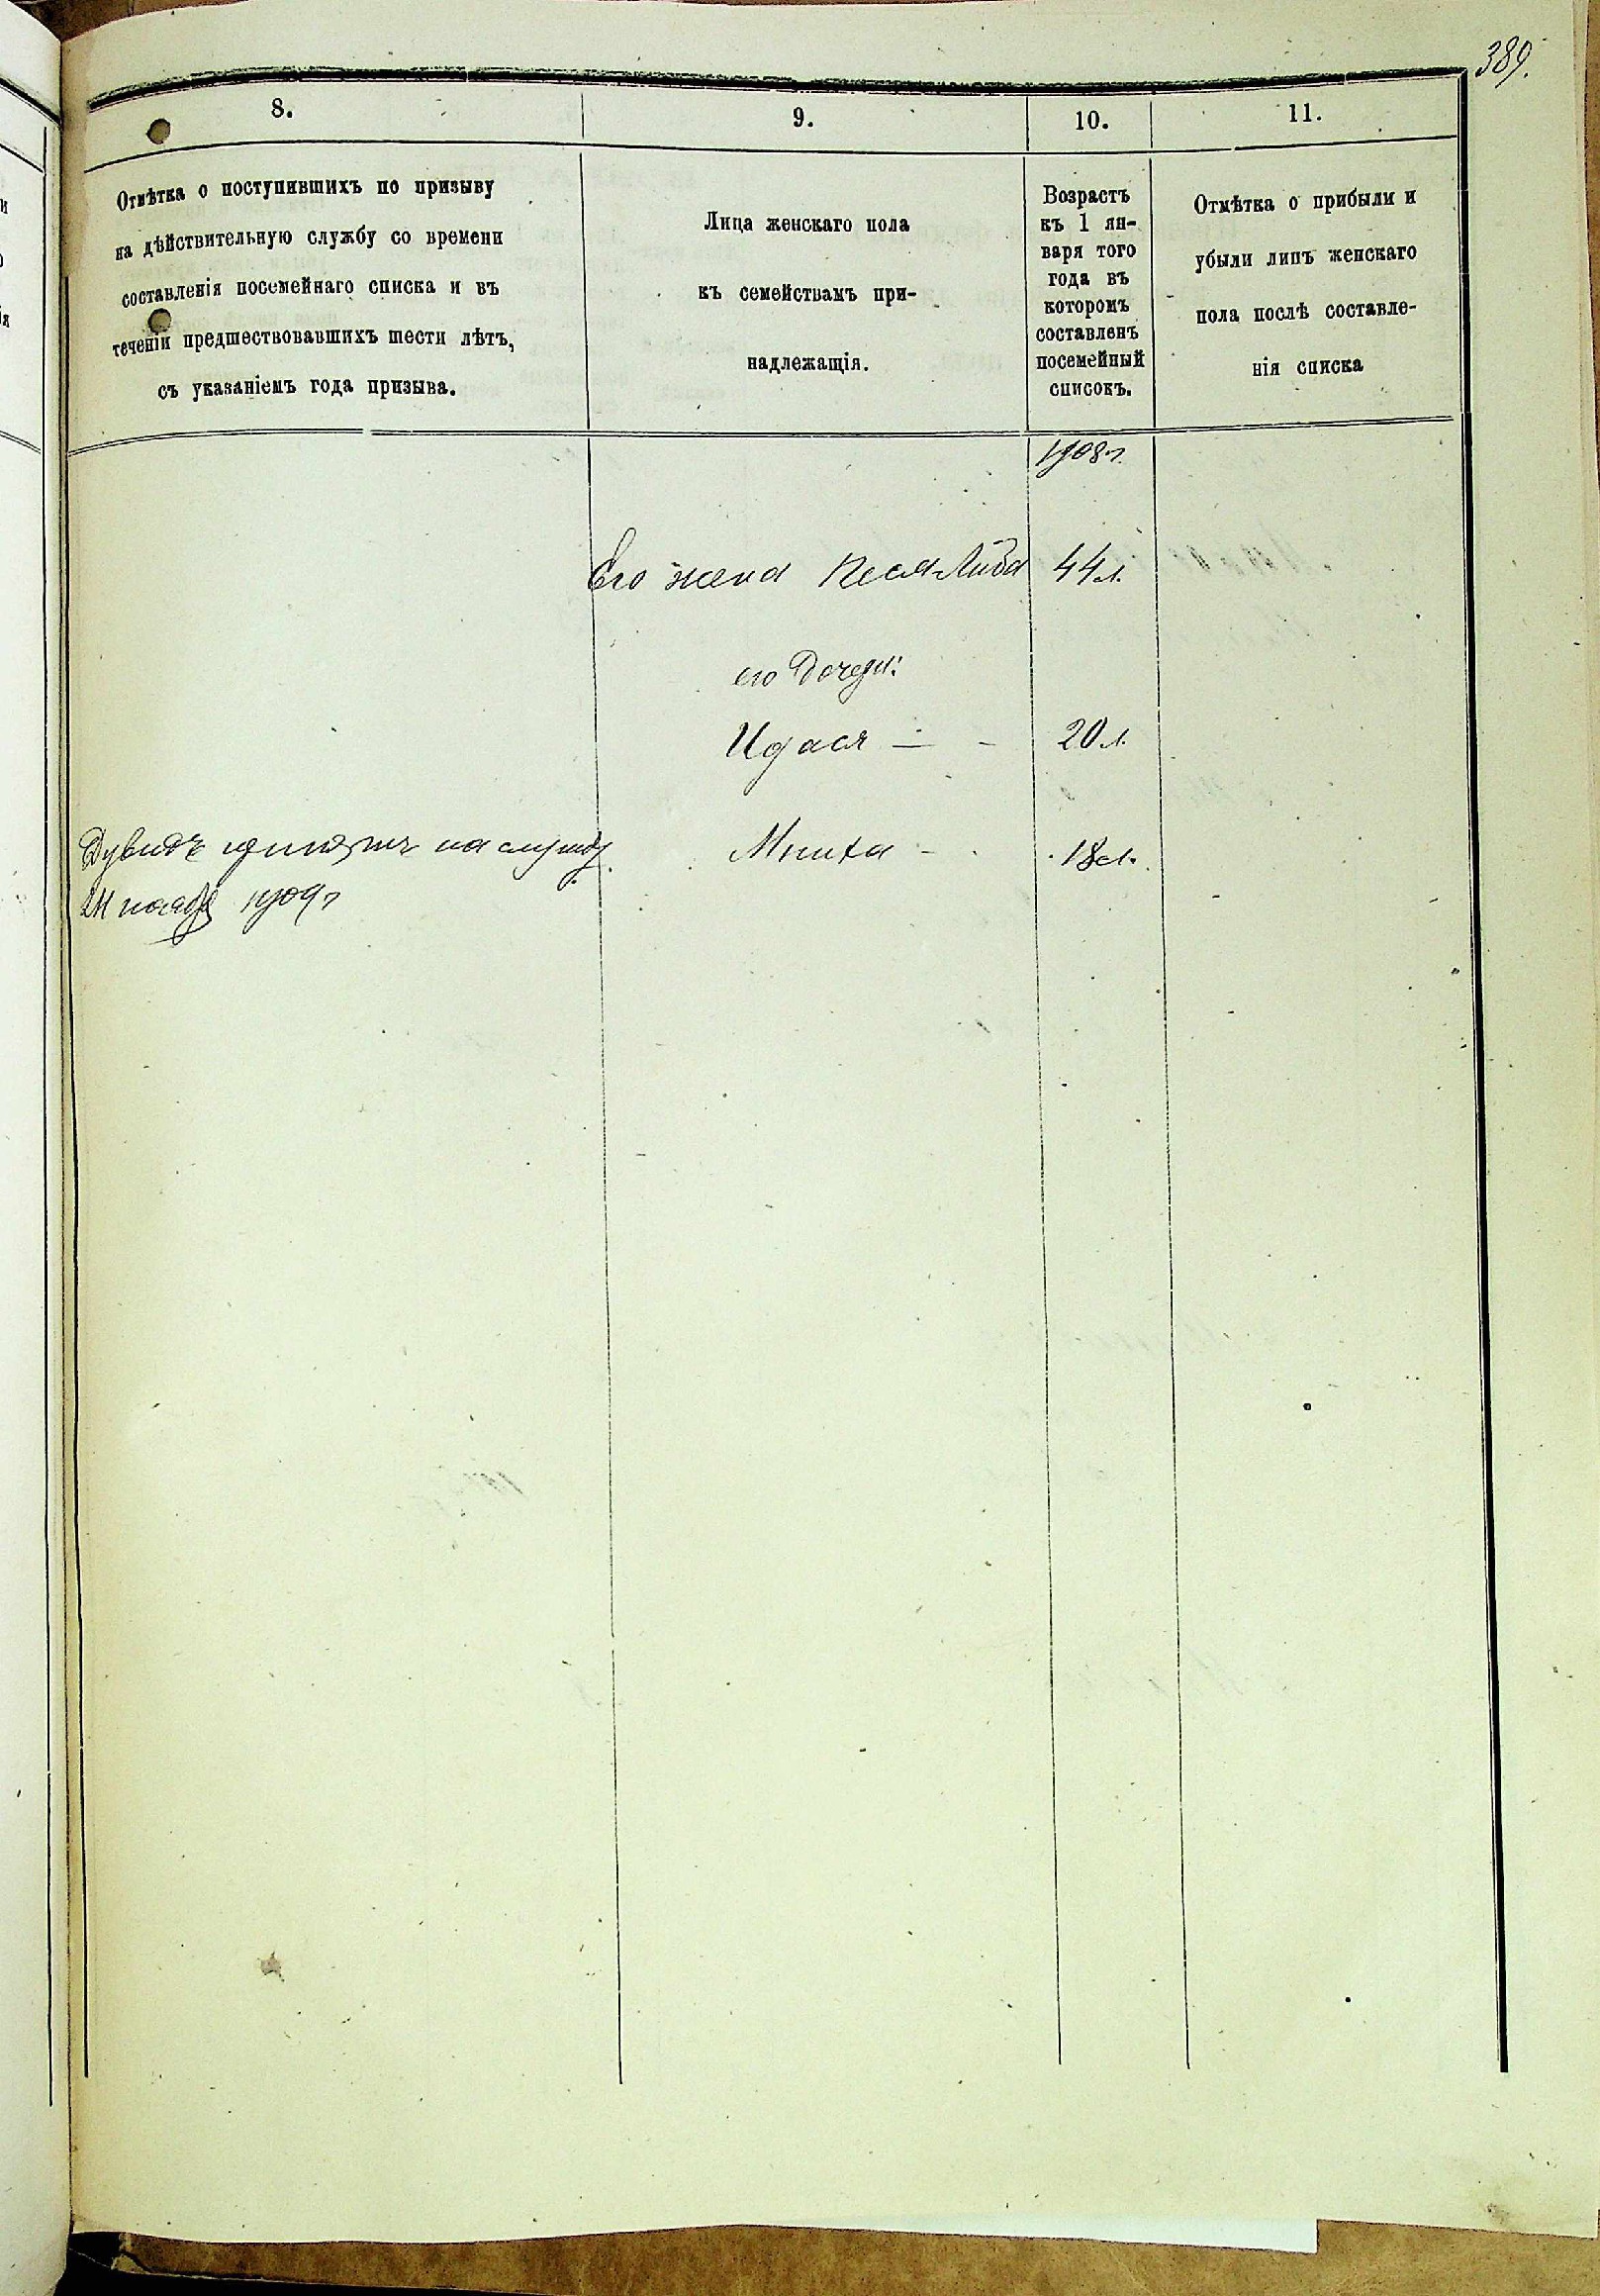 389.
8.
9.
10.
11.
Отмѣтка о поступившихъ по призыву
на дѣйствительную службу со времени
составленія посемейнаго списка и въ
теченіи предшествовавшихъ шести лѣтъ,
съ указаніемъ года призыва.
Лица женскаго пола
къ семействамъ при-
надлежащія.
Возрастъ
къ 1 ян-
варя того
года въ
которомъ
составленъ
посемейный
списокъ.
Отмѣтка о прибыли и
убыли лицъ женскаго
пола послѣ составле-
нія списка
1908 г.
Его жена Песя-Либа 44 л.
его Дочери:
Идася — - 20 л.
Дувидъ принятъ на службу
Мниха - 18 л.
ноября 1909 г